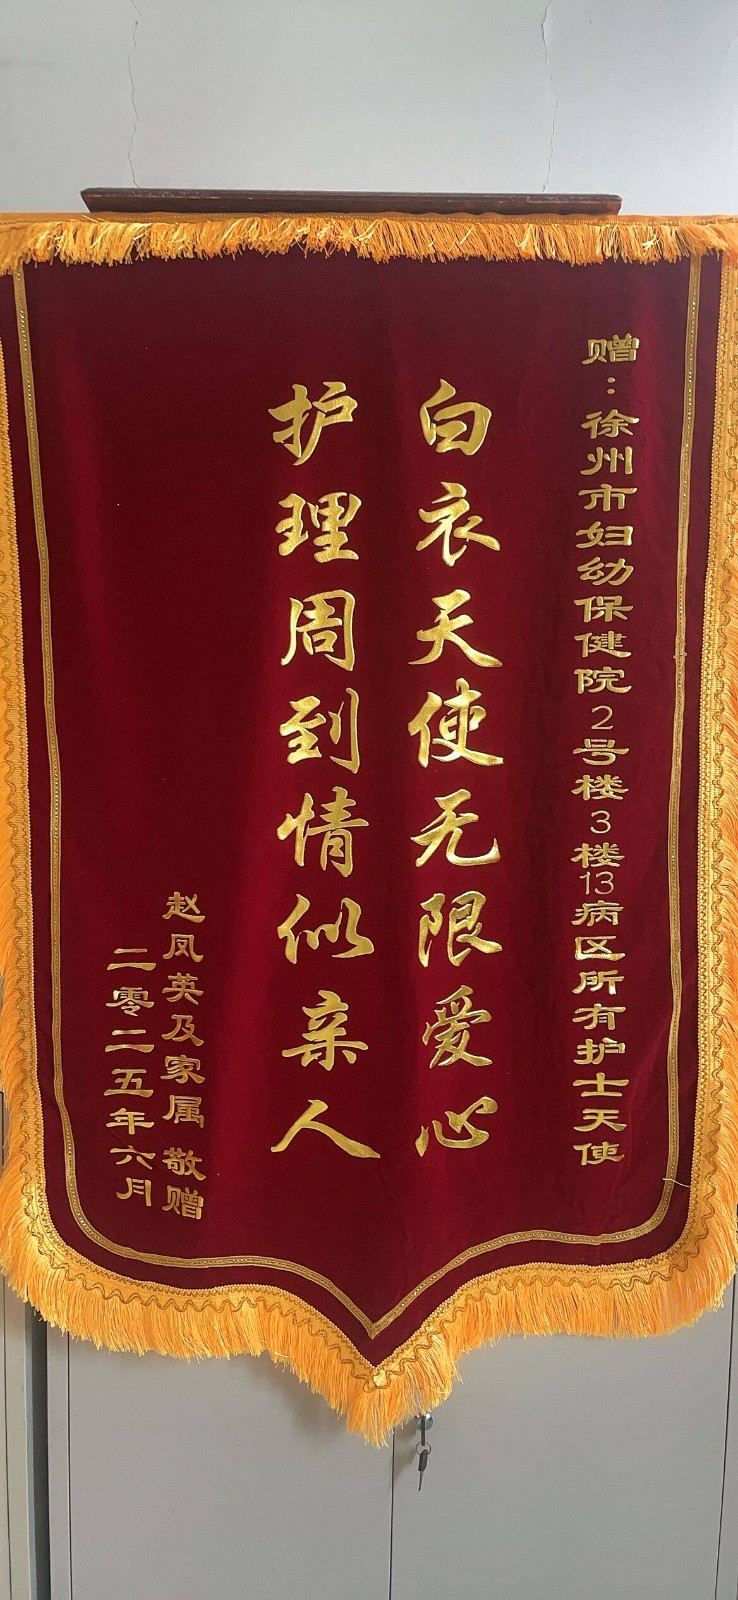 赠：徐州市妇幼保健院2号楼3楼13病区所有护士天使
白衣天使无限爱心
护理周到情似亲人
赵凤英及家属 敬赠
二零二五年六月